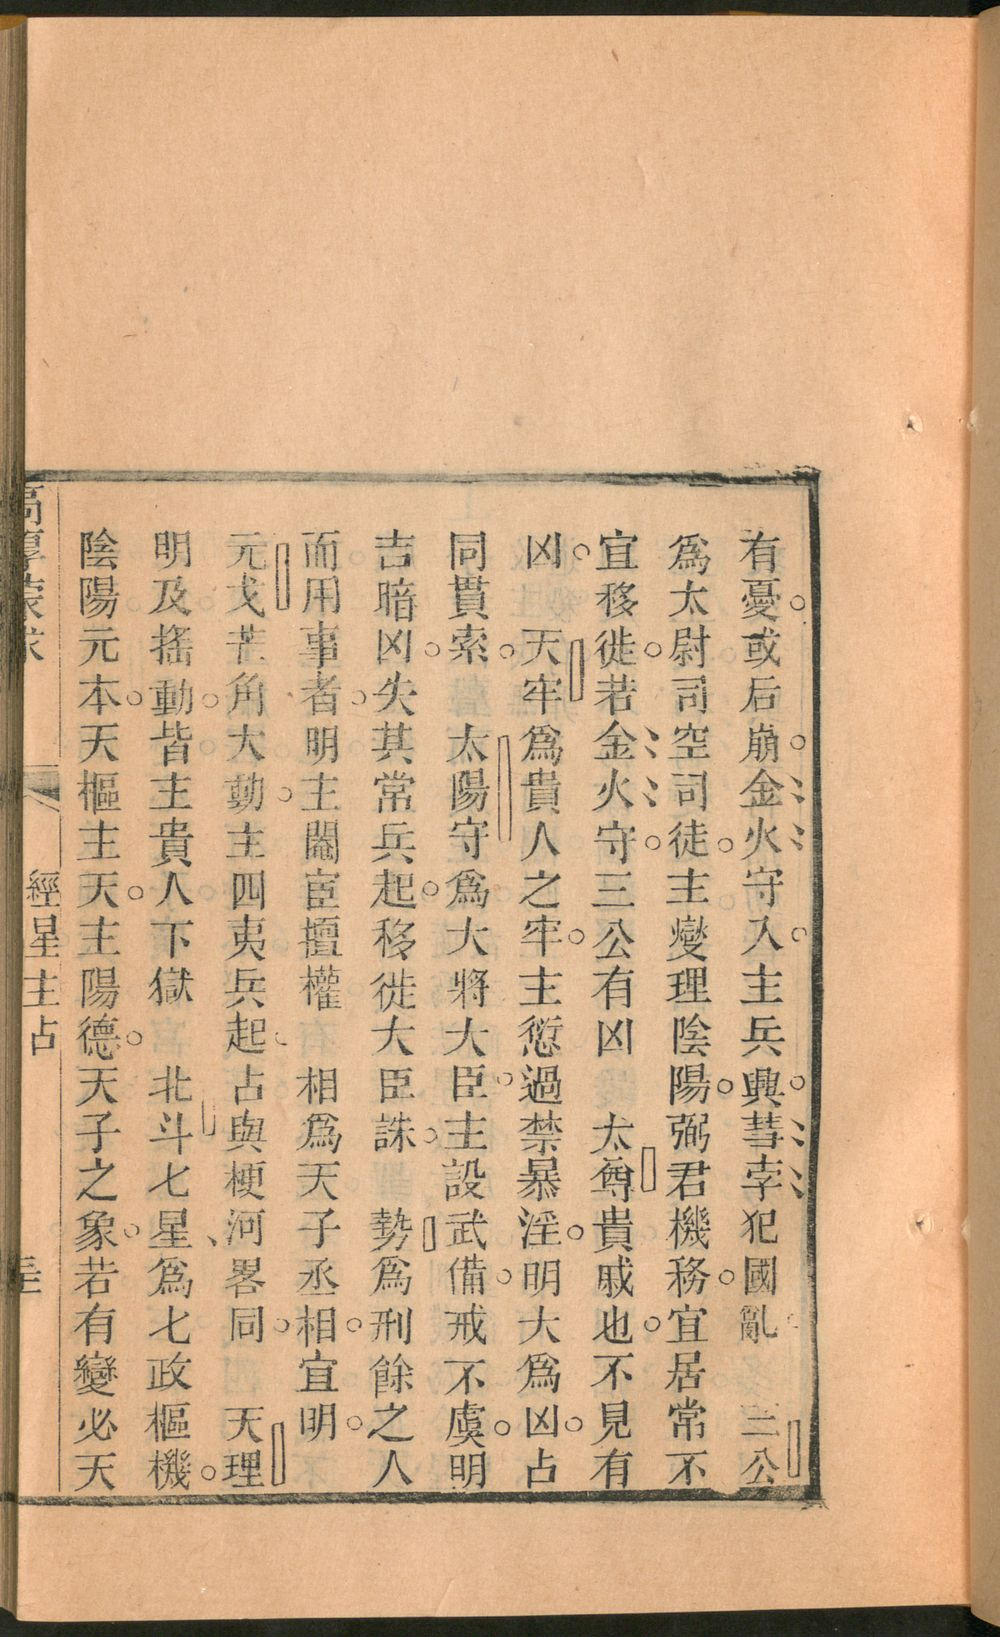 有憂或后崩金火守入主兵興彗孛犯國亂　三公
爲太尉司空司徒主燮理陰陽弼君機務宜居常不
宜移徙若金火守三公有凶　太尊貴戚也不見有
凶　天牢爲貴人之牢主愆過禁暴淫明大爲凶占
同貫索　太陽守爲大將大臣主設武備戒不虞明
吉暗凶失其常兵起移徙大臣誅　勢爲刑餘之人
而用事者明主閹宦擅權　相爲天子丞相宜明
元戈芒角大動主四夷兵起占與梗河畧同　天理
明及搖動皆主貴人下獄　北斗七星爲七政樞機
陰陽元本天樞主天主陽德天子之象若有變必天
高厚蒙求
經星主占